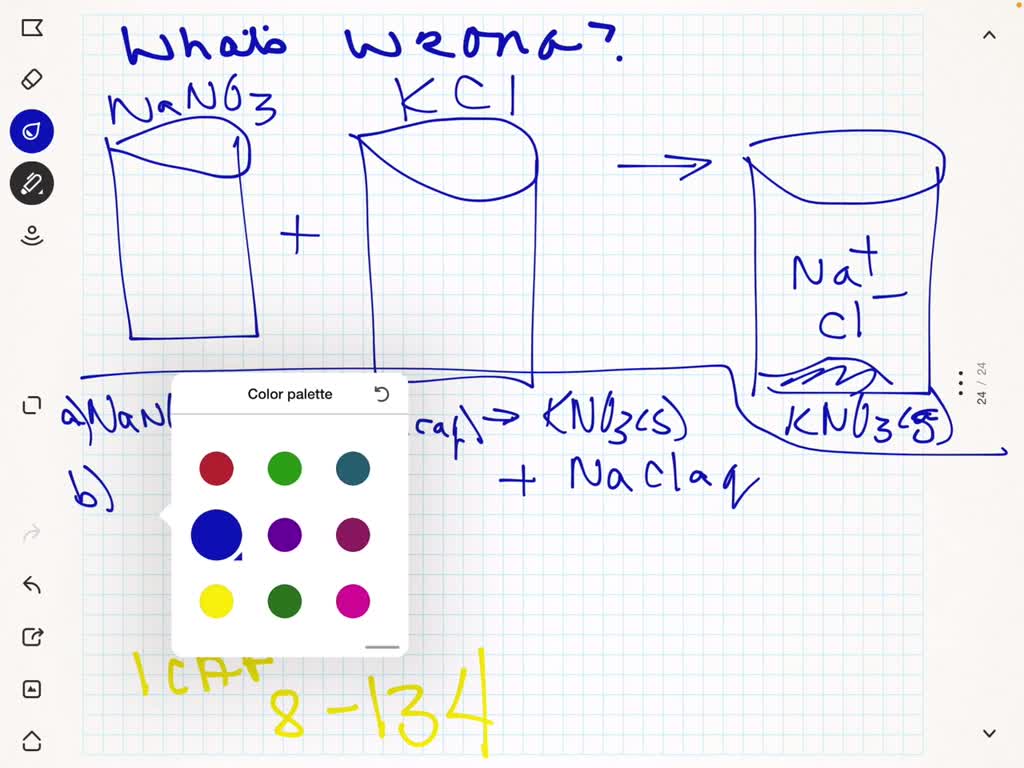 What's wrong?
NaNO3 KCl
+ →
Na+
Cl−
KNO3(s)
a) NaN (aq) → KNO3(s)
b) + NaClaq
Color palette
8-134
24 / 24